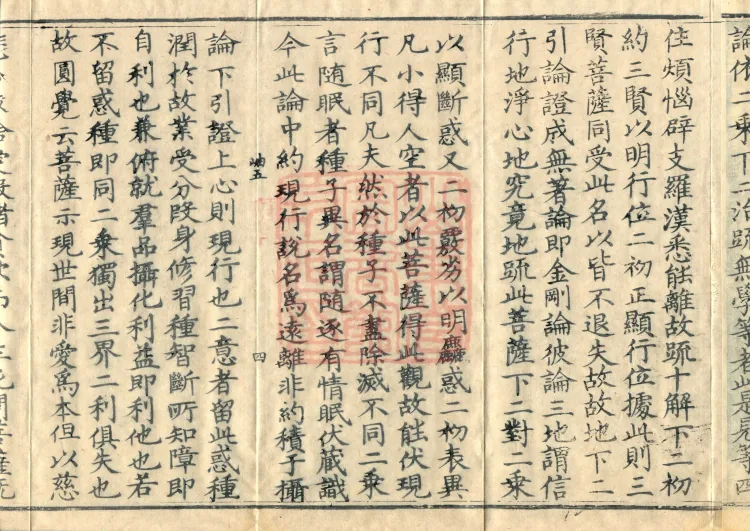 論依二乘下二治䟽無學等者此是異等四
住煩惱辟支羅漢悉能離故䟽十解下二初
約三賢以明行位二初正顯行位據此則三
賢菩薩同受此名以皆不退失故故地下二
引論證成無著論即金剛論彼論三地謂信
行地淨心地究竟地䟽此菩薩下二對二乘
以顯斷惑又二初覈劣以明麤惑二初表異
凡小得人空者以此菩薩得此觀故能伏現
行不同凡夫然於種子不盡除滅不同二乘
言随眠者種子異名謂随逐有情眠伏蔵識
今此論中約現行說名爲遠離非約積子攝
岫五
四
論下引證上心則現行也二意者留此惑種
潤於故業受分段身修習種智斷所知障即
自利也兼俯就羣品攝化利益即利他也若
不留惑種即同二乘獨出三界二利俱失也
故圓覺云菩薩示現世間非愛爲本但以慈